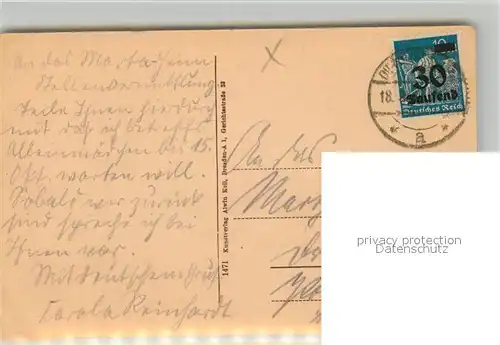 An das Marta-Heim
Stellenvermittlung
Teile Ihnen hierdurch
mit daß ich betreffs
Alleinmädchen bis 15.
Okt. warten will.
Sobald wir zurück
sind spreche ich bei
Ihnen vor.
Mit deutschem Gruß
Carola Reinhardt
1471 Kunstverlag Alwin Keil, Dresden-A 1, Gerichtsstraße 23
30
Tausend
Deutsches Reich
18.
* a *
An das
privacy protection
Datenschutz